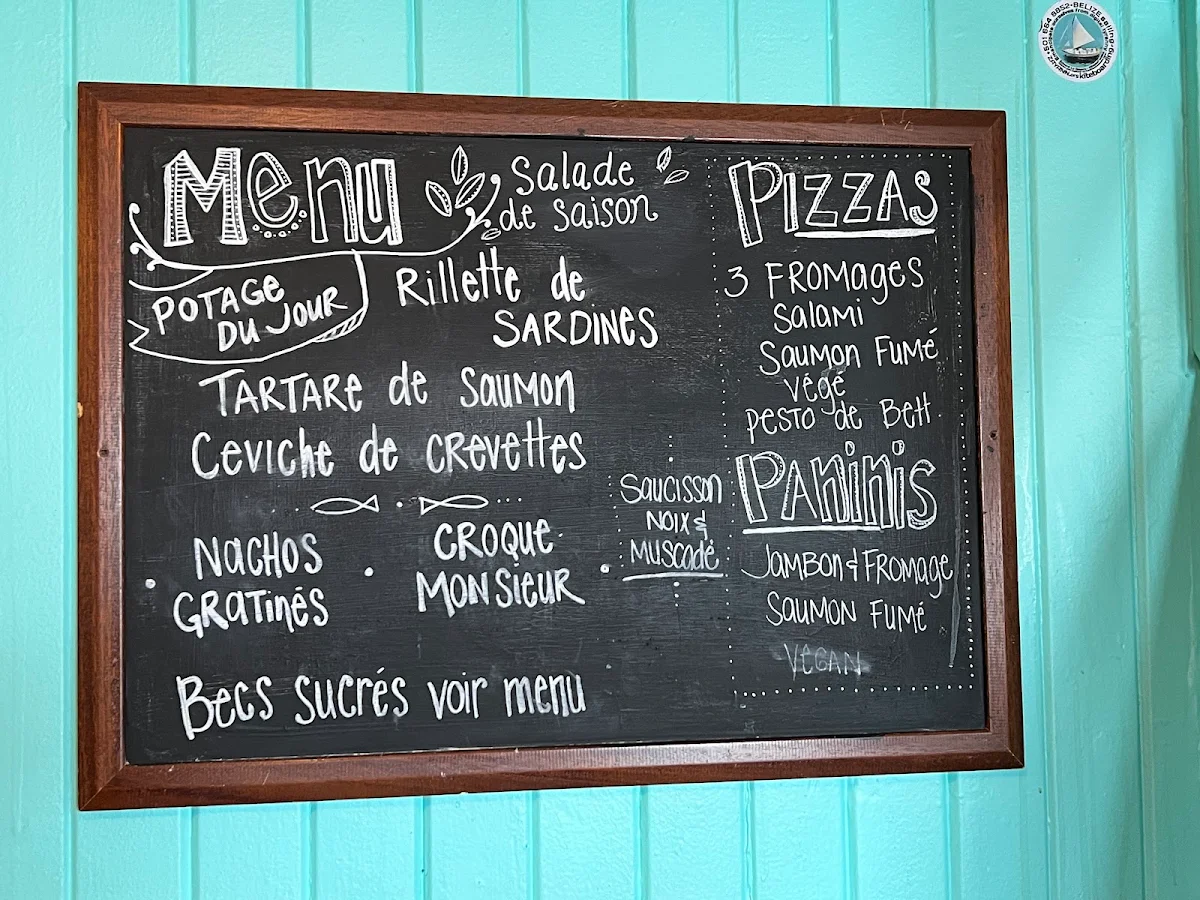 Menu
Salade
de saison
POTAGE
DU JOUR
Rillette de
SARDINES
TARTARE de SAUMON
Ceviche de CREVETTES
NACHOS
GRATINÉS
CROQUE-
MONSIEUR
SAUCISSON
NOIX &
MUSCADE
Becs sucrés voir menu
PIZZAS
3 FROMAGES
Salami
SAUMON FUMÉ
VÉGÉ
PESTO de Bett
PANINIS
JAMBON & FROMAGE
SAUMON FUMÉ
VÉGAN
501 664 8852 • BELIZE sailing
kiteboarding